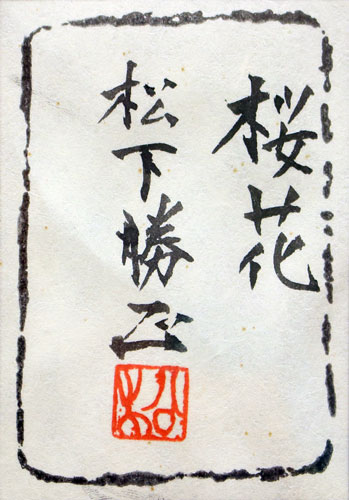 桜花
松下勝正
松